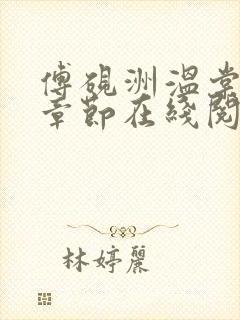 傅硯洲溫棠
章節在綫閱
林婷麗